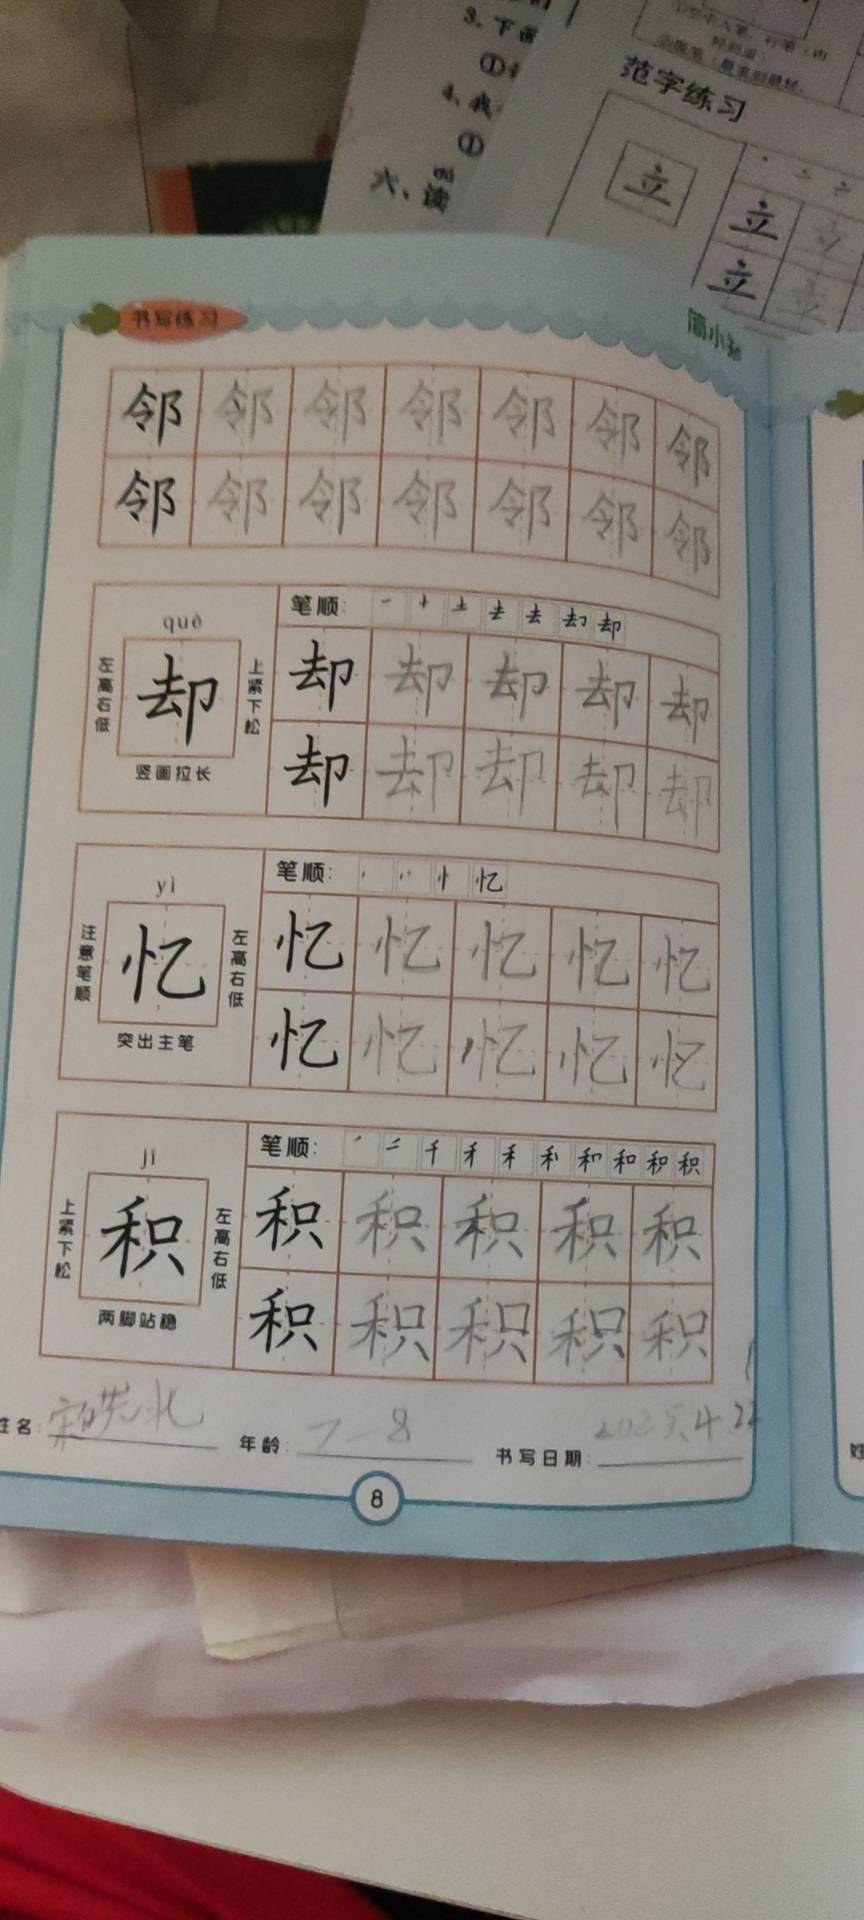 3、下面
①
4、我
①
六、读
范字练习
立
立
立
书写练习
邻 邻 邻 邻 邻 邻 邻
邻 邻 邻 邻 邻 邻 邻
què
左高右低
却
上紧下松
竖画拉长
笔顺: 一 十 土 去 去 却 却
却 却 却 却 却
却 却 却 却 却
yì
注意笔顺
忆
左高右低
突出主笔
笔顺: 忄 忆
忆 忆 忆 忆 忆
忆 忆 忆 忆 忆
jī
上紧下松
积
左高右低
两脚站稳
笔顺: 千 禾 和 积
积 积 积 积 积
积 积 积 积 积
姓名:
年龄:
书写日期: 2025.4.22
8